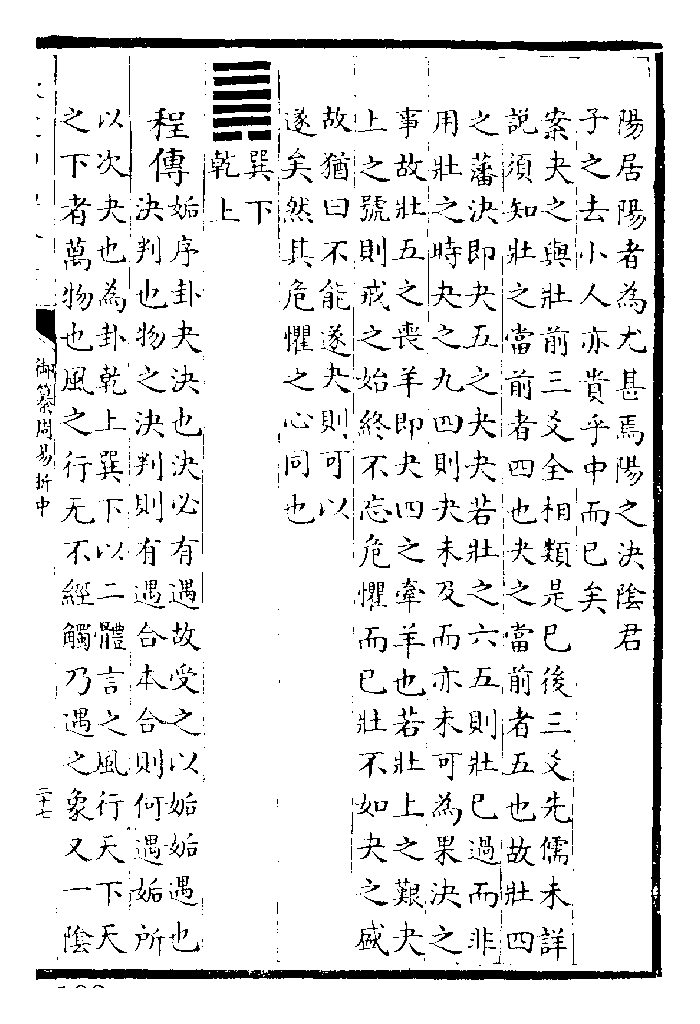 陽居陽者為尤甚焉陽之決陰君
子之去小人亦貴乎中而已矣
案夬之與壯前三爻全相類是巳後三爻先儒未詳
說須知壯之當前者四也夬之當前者五也故壯四
之藩決即夬五之夬夬若壯之六五則壯巳過而非
用壯之時夬之九四則夬未及而亦未可為果決之
事故壯五之喪羊即夬四之牽羊也若壯上之艱夬
上之號則戒之始終不忘危懼而已壯不如夬之盛
故猶曰不能遂夬則可以
遂矣然其危懼之心同也
巽下
乾上
程傳
姤序卦夬決也決必有遇故受之以姤姤遇也
決判也物之決判則有遇合本合則何遇姤所
以次夬也為卦乾上巽下以二體言之風行天下天
之下者萬物也風之行无不經觸乃遇之象又一陰
御纂周易折中
二十七